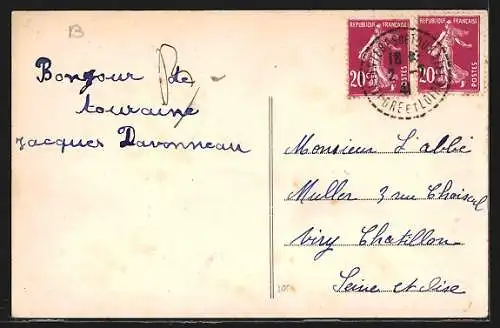 B
REPUBLIQUE FRANÇAISE REPUBLIQUE FRANÇAISE
20c POSTES 20c POSTES
18
INDRE ET LOIRE
Bonjour de
touraine
Jacques Davonneau
Monsieur L'abbé
Muller 3 rue Choiseul
Viry Chatillon
Seine et Oise